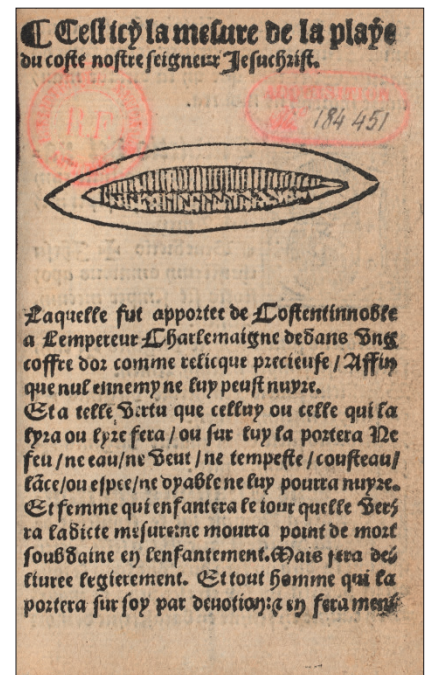 ¶ Cest icy la mesure de la playe
du coste nostre seigneur Jesuchrist.
R.F
184 451
Laquelle fut apportee de Costentinnoble
a Lempereur Charlemaigne dedans ung
coffre dor comme relicque precieuse / Affin
que nul ennemy ne luy peust nuyre.
Et a telle vertu que celluy ou celle qui la
lyra ou lyre fera / ou sur luy la portera Ne
feu / ne eau / ne vent / ne tempeste / cousteau /
lãce / ou espee / ne dyable ne luy pourra nuyre.
Et femme qui enfantera le iour quelle verra
ra ladicte mesure: ne mourra point de mort
soubdaine en lenfantement. Mais sera de
liuree legierement. Et tout homme qui la
portera sur soy par deuotion: &